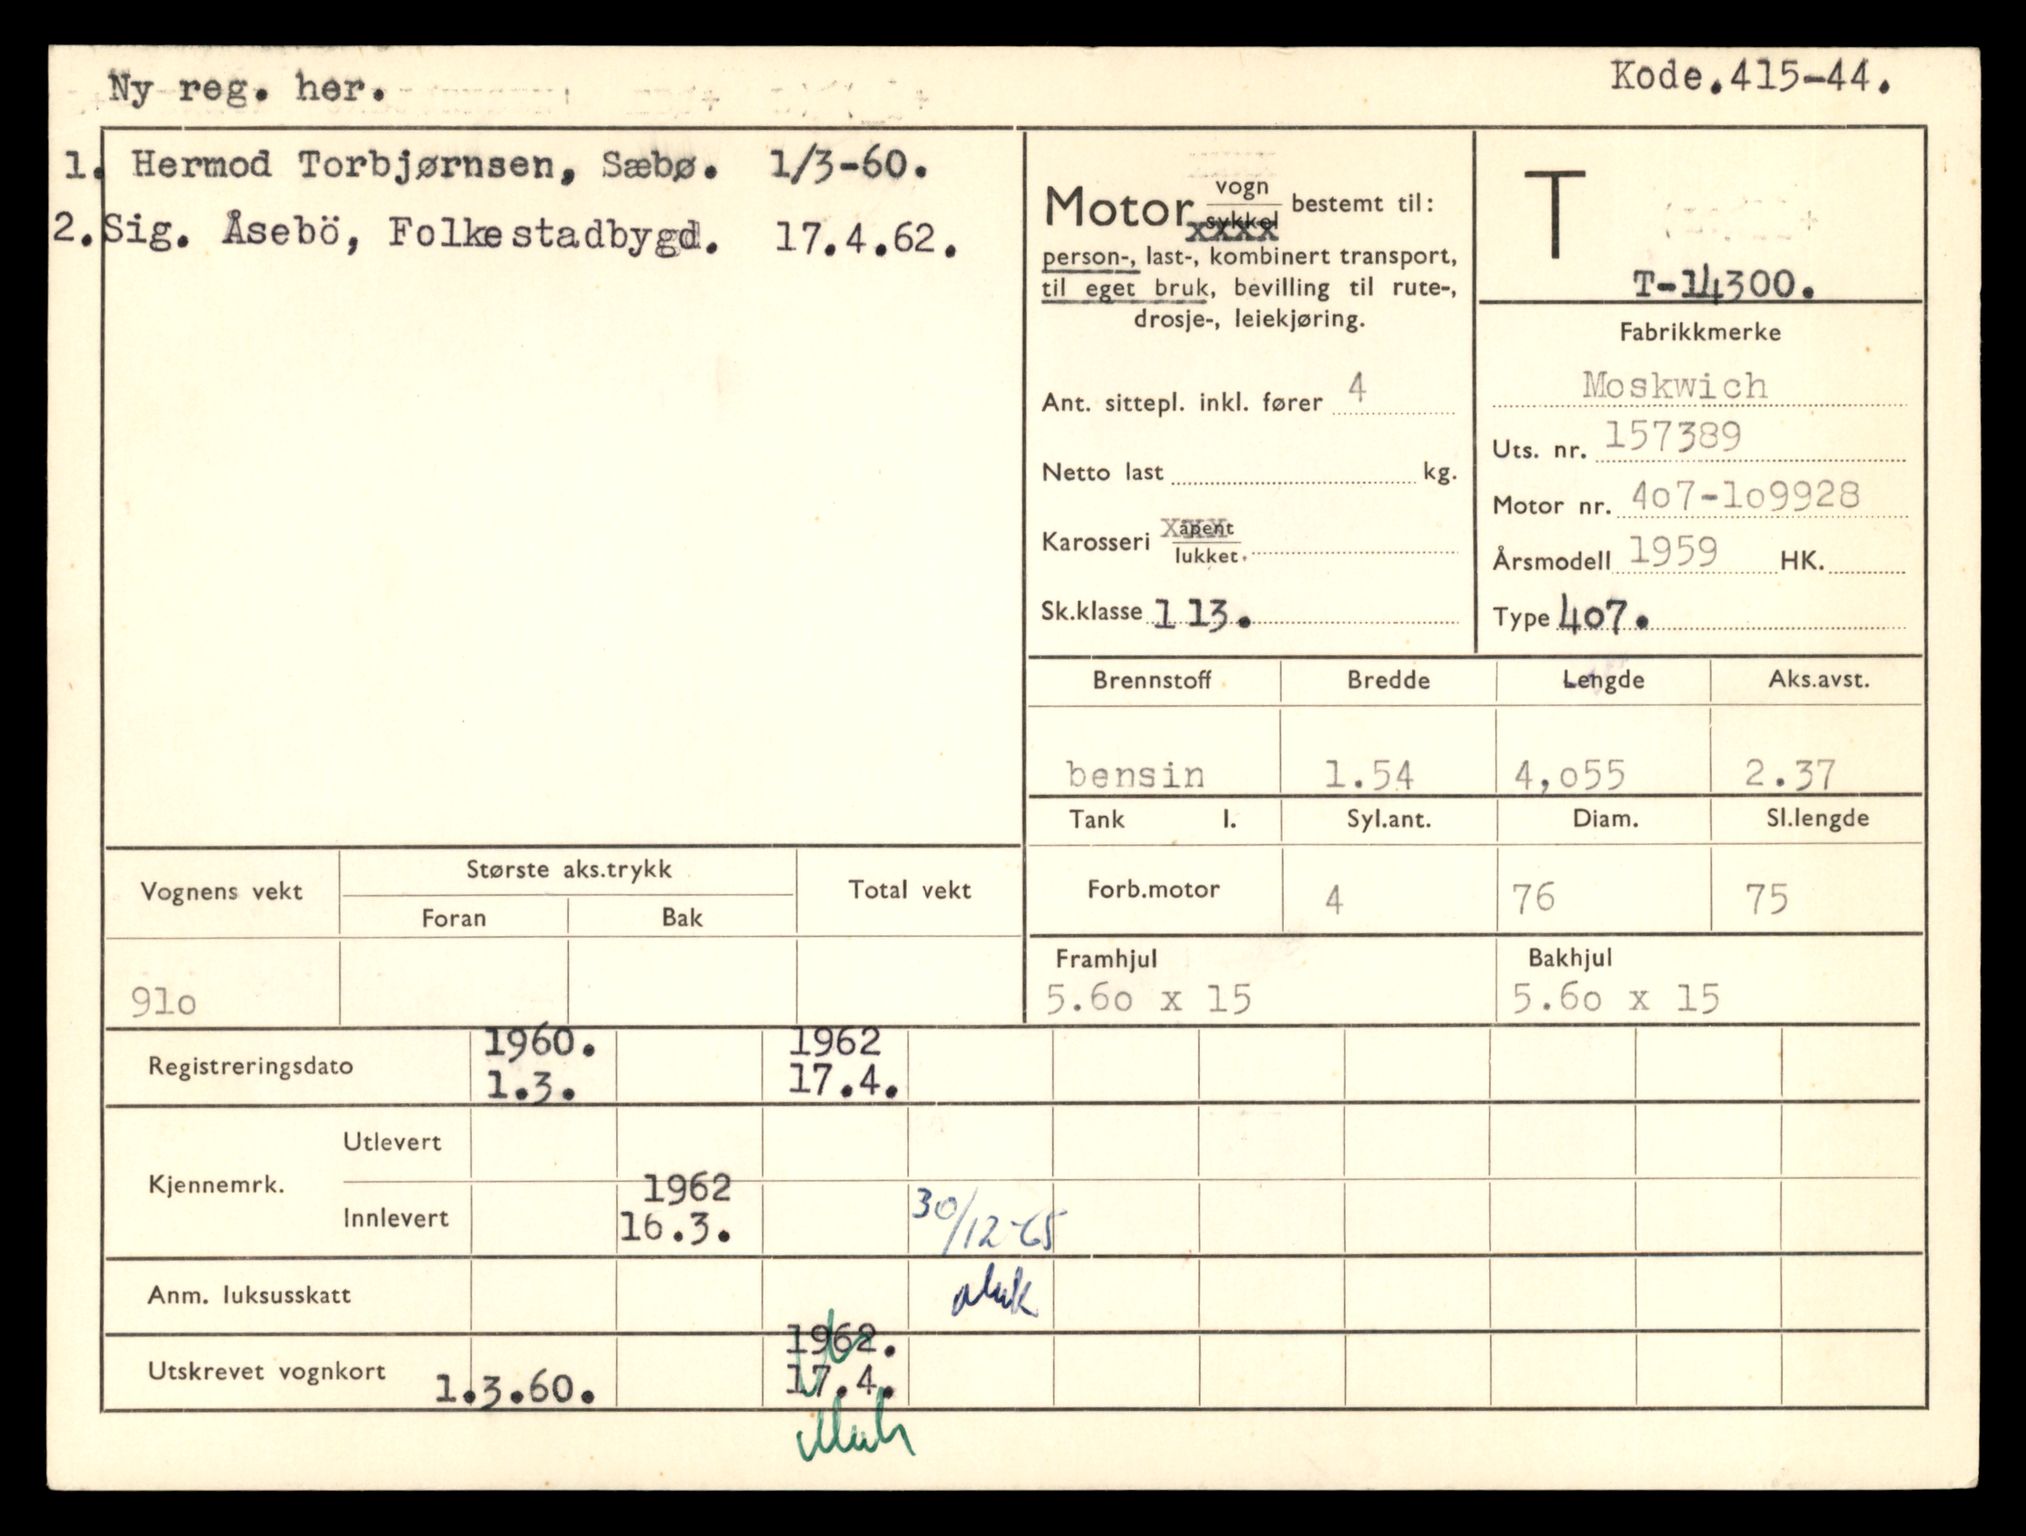 Ny reg. her.
Kode.415-44.
1. Hermod Torbjørnsen, Sæbø. 1/3-60.
2. Sig. Åsebö, Folkestadbygd. 17.4.62.
Motor vogn sykkel bestemt til:
person-, last-, kombinert transport,
til eget bruk, bevilling til rute-,
drosje-, leiekjøring.
Ant. sittepl. inkl. fører 4
Netto last kg.
Karosseri åpent lukket.
Sk.klasse 1 13.
T
T-14300.
Fabrikkmerke
Moskwich
Uts. nr. 157389
Motor nr. 4o7-1o9928
Årsmodell 1959 HK.
Type 4o7.
Brennstoff Bredde Lengde Aks.avst.
bensin 1.54 4,o55 2.37
Tank l. Syl.ant. Diam. Sl.lengde
Forb.motor 4 76 75
Framhjul Bakhjul
5.6o x 15 5.6o x 15
Vognens vekt Største aks.trykk Total vekt
Foran Bak
91o
Registreringsdato 1960. 1962
1.3. 17.4.
Kjennemrk. Utlevert
Innlevert 1962 30/12-65
16.3.
Anm. luksusskatt
Utskrevet vognkort 1.3.60. 1962.
17.4.